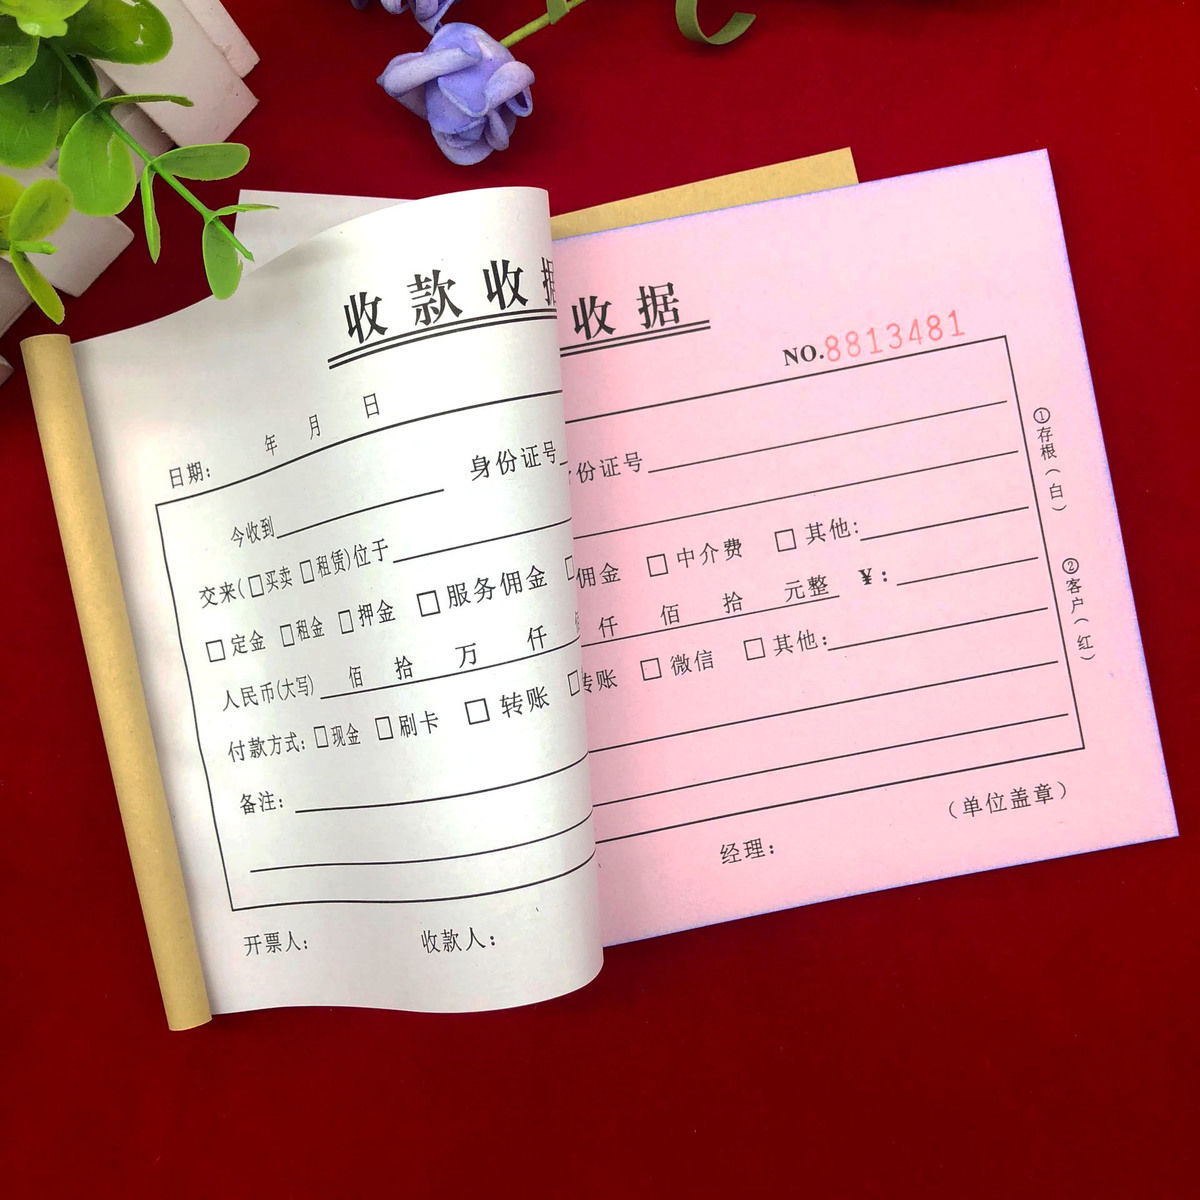 收款收据
收据
NO.8813481
日期： 年 月 日
今收到 身份证号
份证号
交来(□买卖 □租赁)位于
□定金 □租金 □押金 □服务佣金
佣金 □中介费 □其他:
人民币(大写) 佰 拾 万 仟
仟 佰 拾 元整 ¥:
付款方式: □现金 □刷卡 □转账
转账 □微信 □其他:
备注:
开票人: 收款人:
经理:
（单位盖章）
①存根(白)
②客户(红)